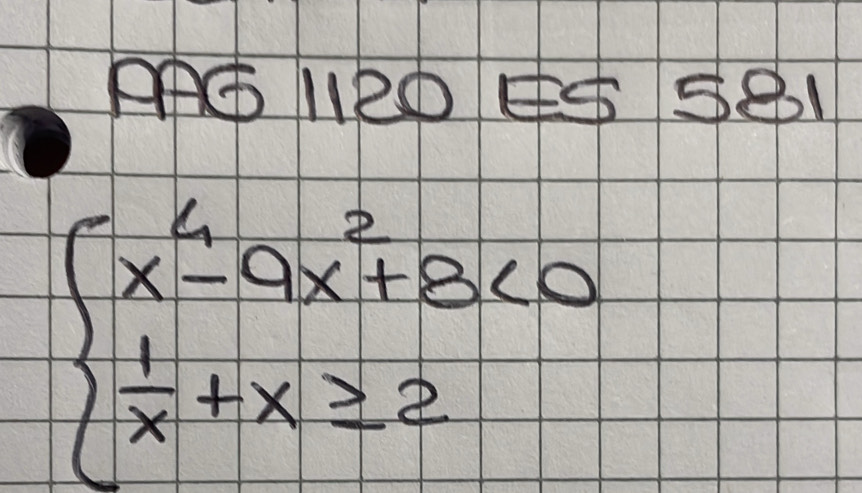 PAG 1120 ES 581
x⁴ - 9x² + 8 < 0
1/x + x ≥ 2